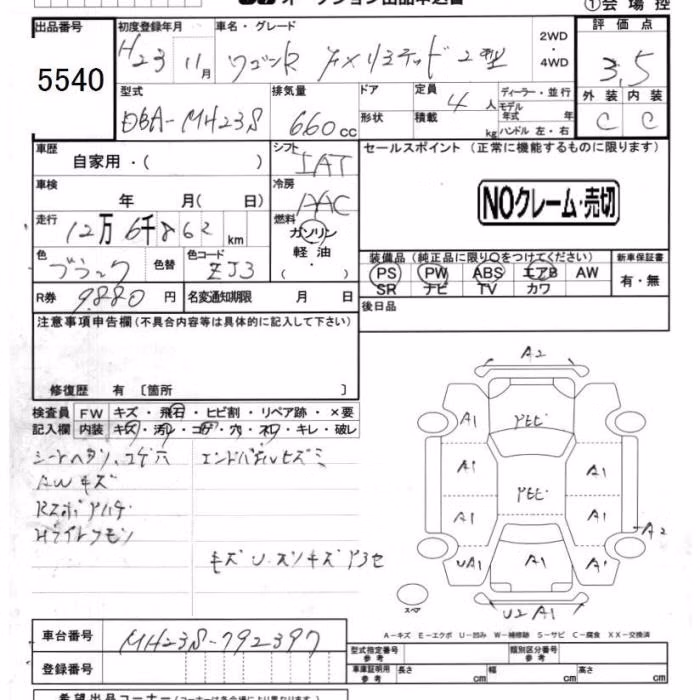 オークション出品申込書 ①会場控
出品番号 初度登録年月 車名・グレード 2WD・4WD 評価点
5540 H23 11月 ワゴンR FXリミテッド2型 3.5
型式 排気量 ドア 定員 4人 ディーラー・並行 外装 内装
DBA-MH23S 660cc 形状 積載 kg モデル年式 年 ハンドル 左・右 C C
車歴 シフト セールスポイント(正常に機能するものに限ります)
自家用・( ) IAT
車検 冷房 NOクレーム・売切
年 月( 日) AAC
走行 燃料
12万6千862km ガソリン・軽油・( )
色 色替 色コード 装備品(純正品に限り○をつけてください) 新車保証書
ブラック ZJ3 PS PW ABS エアB AW 有・無
SR ナビ TV カワ
R券 9,880円 名変通知期限 月 日 後日品
注意事項申告欄(不具合内容等は具体的に記入して下さい)
修復歴 有 〔箇所 〕
検査員 FW キズ・飛石・ヒビ割・リペア跡・×要
記入欄 内装 キズ・汚レ・コゲ・穴・ネジ・キレ・破レ
シートヘタリ、コゲ穴 エンドパネルヒズミ
AWキズ
A2
A1 A1 A1 A1 A1
UA1 A1 A1 A2
スペア
U2 A1
A-キズ E-エクボ U-凹み W-補修跡 S-サビ C-腐食 XX-交換済
車台番号 MH23S-792397
登録番号
型式指定番号 参考 類別区分番号 参考
車庫証明用 参考 長さ cm 幅 cm 高さ cm
希望出品コーナー